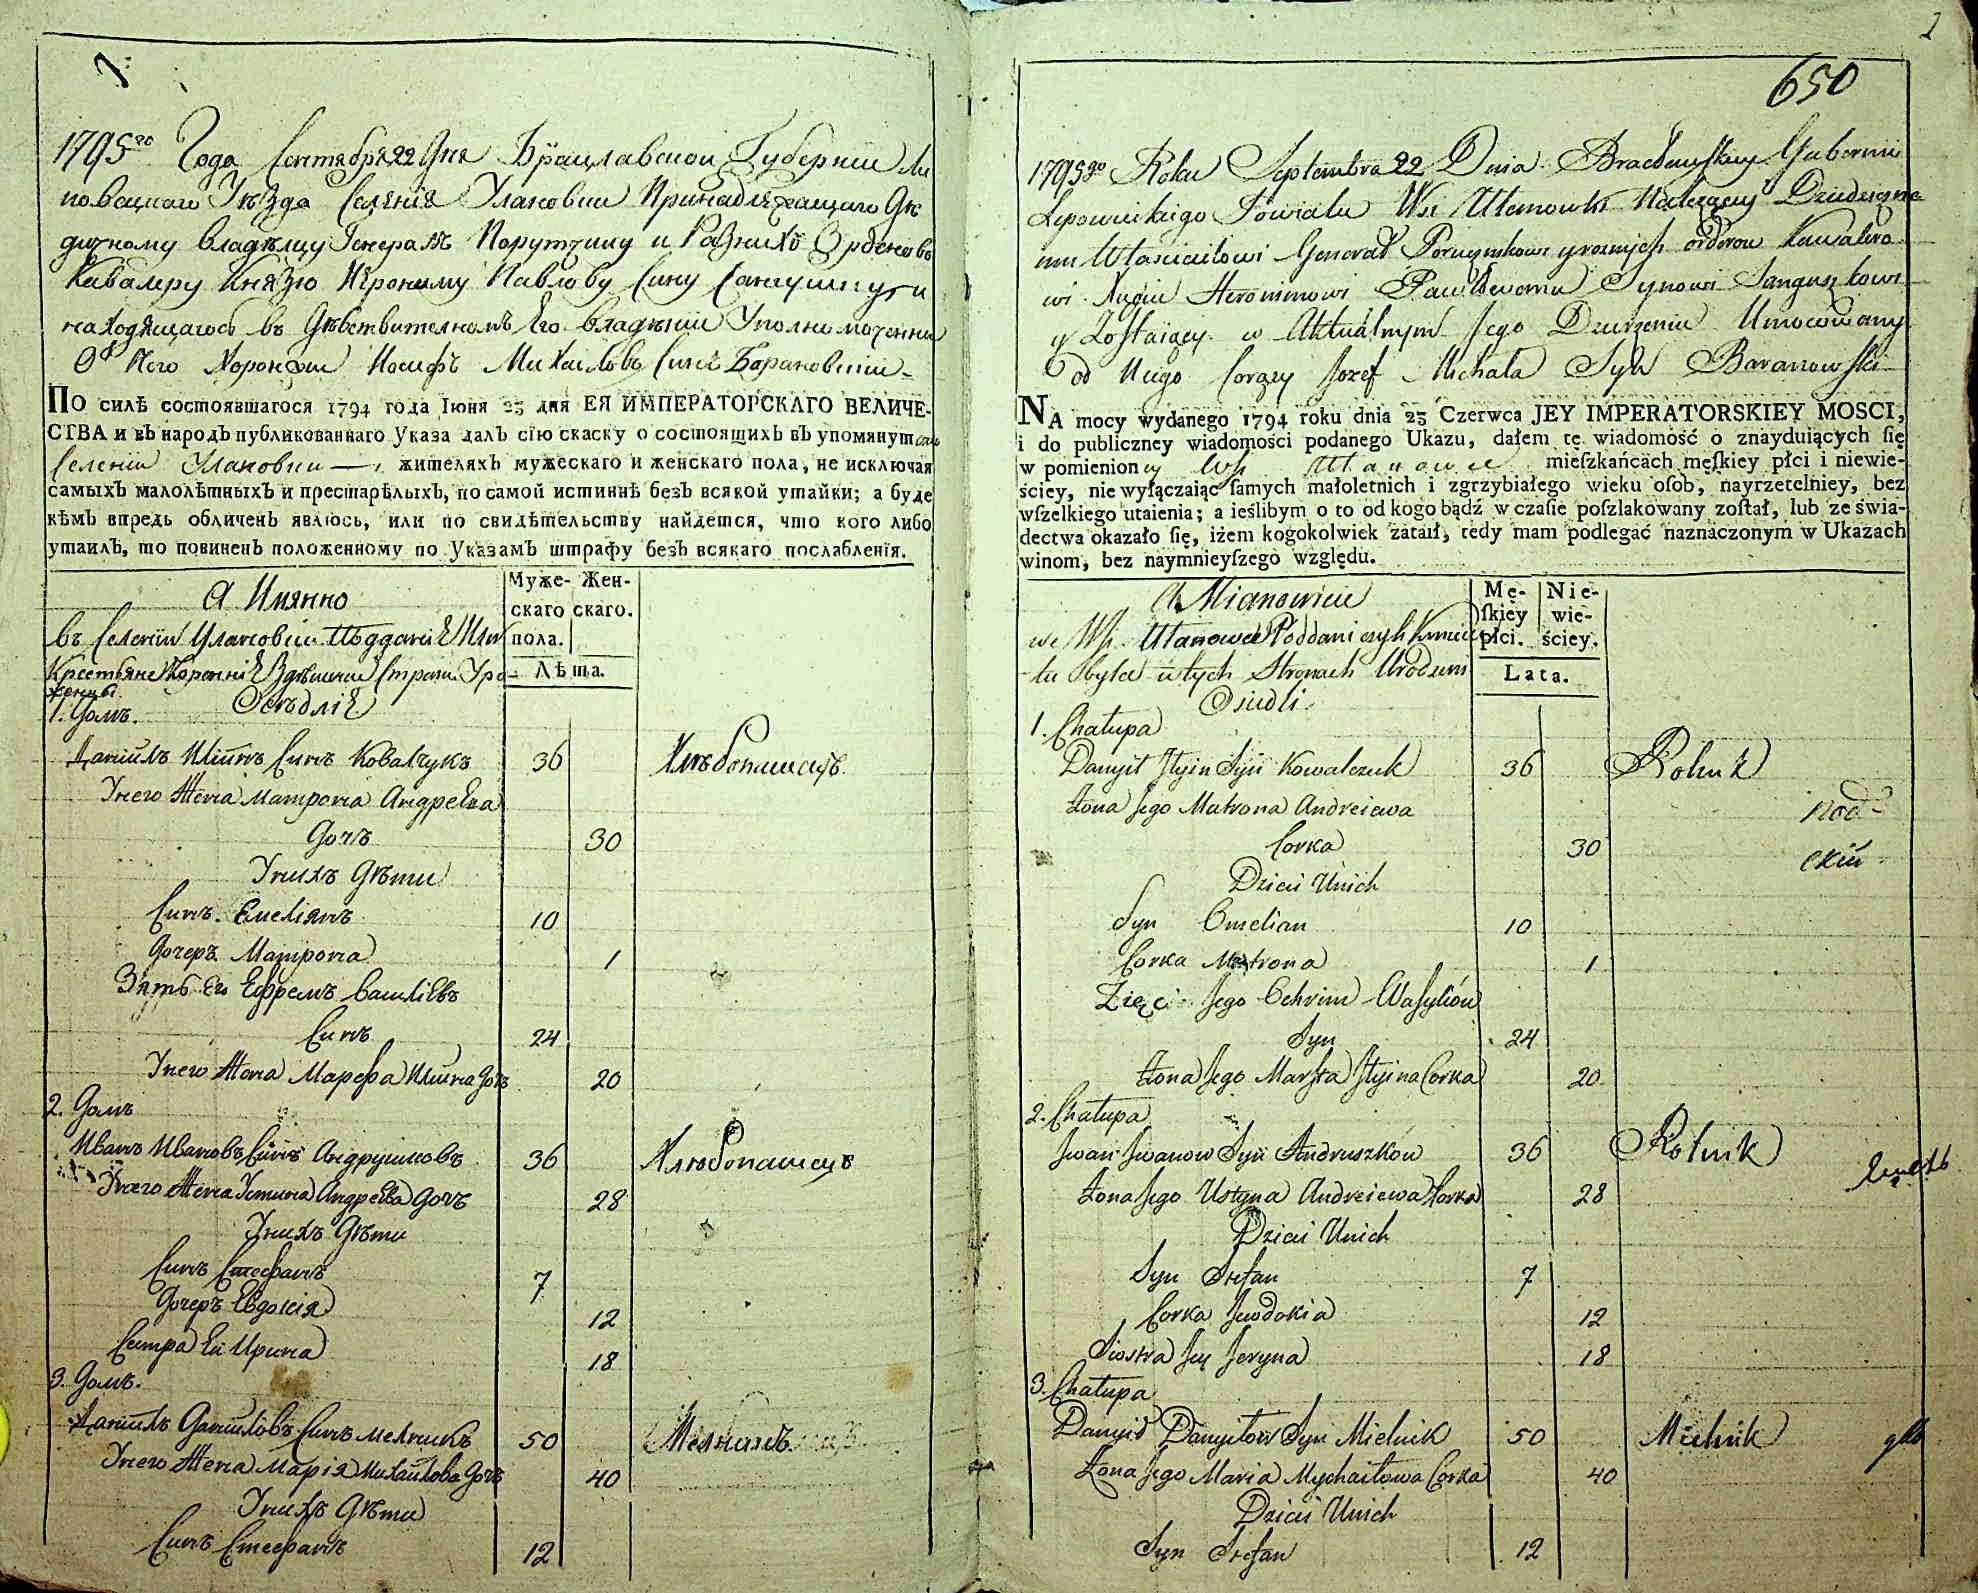 1
1795го Года Сентября 22 Дня Брацлавской Губернии Ли
повецкаго Уѣзда Селения Улановки Принадлежащаго Дѣ
дичному Владѣлцу Генералъ Порутчику и Разныхъ Ордѣновъ
Кавалеру Князю Иерониму Павлову Сину Сангушку и
находящагось въ Дѣйствителномъ Его владѣнии Уполномоченни
От Него Хоронжи Иосифъ Михаиловъ Синъ Барановский
ПО силѣ состоявшагося 1794 года Іюня 23 дня ЕЯ ИМПЕРАТОРСКАГО ВЕЛИЧЕ-
СТВА и въ народъ публикованнаго Указа далъ сію скаску о состоящихъ въ упомянутомъ
Селении Улановки — , жителяхъ мужескаго и женскаго пола, не исключая
самыхъ малолѣтныхъ и престарѣлыхъ, по самой истиннѣ безъ всякой утайки; а буде
кѣмъ впредь обличенъ явлюсь, или по свидѣтельству найдется, что кого либо
утаилъ, то повиненъ положенному по Указамъ штрафу безъ всякаго послабленія.
А Имянно
Муже- Жен-
скаго скаго.
пола.
Лѣта.
въ Селении Улановки Подданіе Или
Крестьяне Коренніе Здѣшнии Страни Уро-
женцы
Осѣдліе
1. Домъ.
Данiилъ Илiинъ Синъ Ковалчукъ 36 Хлѣбопашецъ
Унего Жена Матрона Андреева
Дочъ 30
Унихъ Дѣти
Синъ Емелiянъ 10
Дочеръ Матрона 1
Зять Его Ефремъ Василiевъ
Синъ 24
Унего Жена Марефа Илiина Дочъ 20
2. Домъ
Иванъ Ивановъ Синъ Андрушковъ 36 Хлѣбопашецъ
Унего Жена Устина Андреева Дочъ 28
Унихъ Дѣти
Синъ Стефанъ 7
Дочеръ Евдокiя 12
Сестра Ей Ирина 18
3. Домъ.
Данiилъ Данiиловъ Синъ Мелникъ 50 Мелникъ
Унего Жена Марiя Михаилова Дочъ 40
Унихъ Дѣти
Синъ Стефанъ 12
2
650
1795go Roku Septembra 22 Dnia Bracławskiey Gubernii
Lipowieckiego Powiatu Wsi Ułanowki Należącey Dziedziczne
mu Właścicilowi Generał Porucznikowi y roznych orderow Kawalero
wi Xięciu Heronimowi Pawłowemu Synowi Sanguszkowi
y Zostaiącey w Aktualnym Jego Dzierżeniu Umocowany
od Niego Corąży Jozef Michała Syn Baranowski
NA mocy wydanego 1794 roku dnia 23 Czerwca JEY IMPERATORSKIEY MOSCI,
i do publiczney wiadomości podanego Ukazu, dałem tę wiadomość o znayduiących ſię
w pomienioney Wsi Ułanowce mieſzkańcach męſkiey płci i niewie-
ściey, nie wyłączaiąc ſamych małoletnich i zgrzybiałego wieku oſob, nayrzetelniey, bez
wſzelkiego utaienia; a ieślibym o to od kogo bądź w czaſie poſzlakowany zoſtał, lub ze świa-
dectwa okazało ſię, iżem kogokolwiek zataił, tedy mam podlegać naznaczonym w Ukazach
winom, bez naymnieyſzego względu.
A Mianowicie
Mę- Nie-
ſkiey wie-
płci. ściey.
Lata.
we Wsi Ułanowce Poddani czyli Kmiecie
tu byli w tych Stronach Urodzeni
Osiedli
1. Chałupa
Danyił Ilyin Syn Kowalczuk 36 Rolnik
Zona Jego Matrona Andreiewa
Corka 30
Dzieci Unich
Syn Omelian 10
Corka Matrona 1
Zięć Jego Ochrim Wasyliów
Syn 24
Zona Jego Marfta Ilyina Corka 20
2. Chałupa
Iwan Iwanow Syn Andruszków 36 Rolnik
Zona Jego Ustyna Andreiewa Corka 28
Dzieci Unich
Syn Stefan 7
Corka Jewdokia 12
Siostra Jey Jeryna 18
3. Chałupa
Danyło Danyłow Syn Mielnik 50 Mielnik
Zona Jego Maria Mychaiłowa Corka 40
Dzieci Unich
Syn Stefan 12